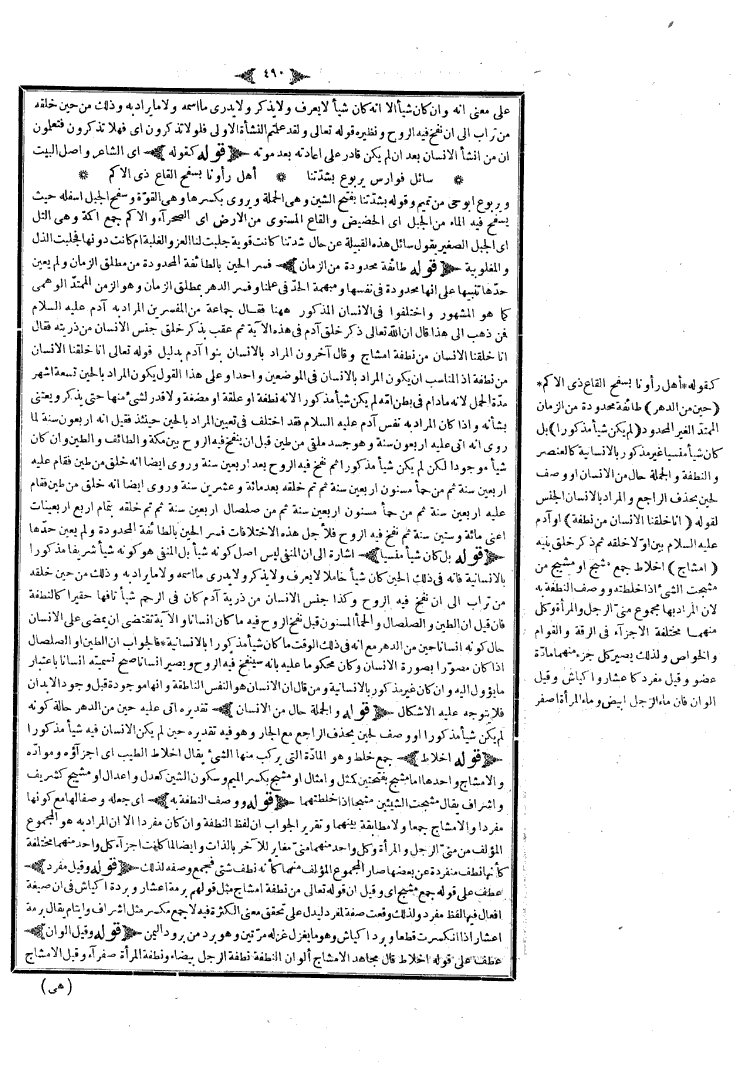 ﴿ ٤٩٠ ﴾
على معنى انه وان كان شيأ الا انه كان شيأ لا يعرف ولا يذكر ولا يدرى ما اسمه ولا ما يراد به وذلك من حين خلقه
من تراب الى ان نفخ فيه الروح ونظيره قوله تعالى ولقد علمتم النشأة الاولى فلولا تذكرون اى فهلا تذكرون فتعلمون
ان من انشأ الانسان بعد ان لم يكن قادر على اعادته بعد موته ﴿ قوله كقوله ﴾ اى الشاعر واصل البيت
* سائل فوارس يربوع بشدّتنا * أهل رأونا بسفح القاع ذى الاكم *
ويربوع ابوحى من تميم وقوله بشدّتنا بفتح الشين وهى الحملة ويروى بكسرها وهى القوّة وسفح الجبل اسفله حيث
يسفح فيه الماء من الجبل اى الحضيض والقاع المستوى من الارض اى الصحرآء والاكم جمع اكمة وهى التل
اى الجبل الصغير يقول سائل هذه القبيلة عن حال شدتنا كانت قوية جلبت لنا العز والغلبة ام كانت دونها فجلبت الذل
والمغلوبية ﴿ قوله طائفة محدودة من الزمان ﴾ فسر الحين بالطائفة المحدودة من مطلق الزمان ولم يعين
حدّها تنبيها على انها محدودة فى نفسها ومبهمة الحدّ فى علمنا وفسر الدهر بمطلق الزمان وهو الزمن الممتدّ الوهمى
كما هو المشهور واختلفوا فى الانسان المذكور ههنا فقال جماعة من المفسرين المراد به آدم عليه السلام
فمن ذهب الى هذا قال ان الله تعالى ذكر خلق آدم فى هذه الآية ثم عقب بذكر خلق جنس الانسان من ذريته فقال
انا خلقنا الانسان من نطفة امشاج وقال آخرون المراد بالانسان بنوا آدم بدليل قوله تعالى انا خلقنا الانسان
من نطفة اذ المناسب ان يكون المراد بالانسان فى الموضعين واحدا وعلى هذا القول يكون المراد بالحين تسعة اشهر
مدّة الحمل لانه مادام فى بطن امّه لم يكن شيأ مذكورا لانه نطفة او علقة او مضغة ولا قدر لشئ منها حتى يذكر ويعتنى
بشأنه واذا كان المراد به نفس آدم عليه السلام فقد اختلف فى تعيين المراد بالحين حينئذ فقيل انه اربعون سنة لما
روى انه اتى عليه اربعون سنة وهو جسد ملقى من طين قبل ان ينفخ فيه الروح بين مكة والطائف والطين وان كان
شيأ موجودا لكن لم يكن شيأ مذكورا ثم نفخ فيه الروح بعد اربعين سنة وروى ايضا انه خلق من طين فقام عليه
اربعين سنة ثم من حمأ مسنون اربعين سنة ثم تم خلقه بعد مائة وعشرين سنة وروى ايضا انه خلق من طين فقام
عليه اربعين سنة ثم من حمأ مسنون اربعين سنة ثم من صلصال اربعين سنة ثم تم خلقه بتمام اربع اربعينات
اعنى مائة وستين سنة ثم نفخ فيه الروح فلأجل هذه الاختلافات فسر الحين بالطائفة المحدودة ولم يعين حدّها
﴿ قوله بل كان شيأ منسيا ﴾ اشارة الى ان المنفى ليس اصل كونه شيأ بل المنفى هو كونه شيأ شريفا مذكورا
بالانسانية فانه فى ذلك الحين كان شيأ خاملا لا يعرف ولا يذكر ولا يدرى ما اسمه ولا ما يراد به وذلك من حين خلقه
من تراب الى ان نفخ فيه الروح وكذا جنس الانسان من ذرية آدم كان فى الرحم شيأ تافها حقيرا كالنطفة
فان قيل ان الطين والصلصال والحمأ المسنون قبل نفخ الروح فيه ما كان انسانا والآية تقتضى ان يمضى على الانسان
حال كونه انسانا حين من الدهر مع انه فى ذلك الوقت ما كان شيأ مذكورا بالانسانية * فالجواب ان الطين او الصلصال
اذا كان مصوّرا بصورة الانسان وكان محكوما عليه بانه سينفخ فيه الروح ويصير انسانا صح تسميته انسانا باعتبار
ما يؤول اليه وان كان غير مذكور بالانسانية ومن قال ان الانسان هو النفس الناطقة وانها موجودة قبل وجود الابدان
فلا يتوجه عليه الاشكال ﴿ قوله والجملة حال من الانسان ﴾ تقديره اتى عليه حين من الدهر حالة كونه
لم يكن شيأ مذكورا او وصف لحين بحذف الراجع مع الجار وهو فيه تقديره حين لم يكن الانسان فيه شيأ مذكورا
﴿ قوله اخلاط ﴾ جمع خلط وهو المادّة التى يركب منها الشئ يقال اخلاط الطيب اى اجزآؤه وموادّه
والامشاج واحدها اما مشج بفتحتين كمثل وامثال او مشج بكسر الميم وسكون الشين كعدل واعدال او مشيج كشريف
واشراف يقال مشجت الشيئين مشجا اذا خلطتهما ﴿ قوله ووصف النطفة به ﴾ اى جعله وصفا لها مع كونها
مفردا والامشاج جمعا ولا مطابقة بينهما وتقرير الجواب ان لفظ النطفة وان كان مفردا الا ان المراد به هو المجموع
المؤلف من منىّ الرجل والمرأة وكل واحد منهما منىّ مغاير للآخر بالذات وايضا لما كانت اجزآء كل واحد منهما مختلفة
كأنها نطف منفردة عن بعضها صار المجموع المؤلف منهما كأنه نطف شتى فجمع وصفه لذلك ﴿ قوله وقيل مفرد ﴾
عطف على قوله جمع مشج اى وقيل ان قوله تعالى من نطفة امشاج مثل قولهم برمة اعشار وبردة اكياش فى ان صيغة
افعال فيها لفظ مفرد ولذلك وقعت صفة لمفرد ليدل على تحقق معنى الكثرة فيه لا جمع مكسر مثل اشراف وايتام يقال برمة
اعشار أذا انكسرت قطعا وبرد اكياش وهو ما يغزل غزله مرّتين وهو برد من برود اليمن ﴿ قوله وقيل الوان ﴾
عطف على قوله اخلاط قال مجاهد الامشاج ألوان النطفة نطفة الرجل بيضاء ونطفة المرأة صفرآء وقيل الامشاج
( هى )
كقوله * أهل رأونا بسفح القاع ذى الاكم *
( حين من الدهر ) طائفة محدودة من الزمان
الممتدّ الغير المحدود ( لم يكن شيأ مذكورا ) بل
كان شيأ منسيا غير مذكور بالانسانية كالعنصر
والنطفة والجملة حال من الانسان او وصف
لحين بحذف الراجع والمراد بالانسان الجنس
لقوله ( انا خلقنا الانسان من نطفة ) او آدم
عليه السلام بين اوّلا خلقه ثم ذكر خلق بنيه
( امشاج ) اخلاط جمع مشج او مشيج من
مشجت الشئ اذا خلطته ووصف النطفة به
لان المراد بها مجموع منىّ الرجل والمرأة وكل
منهما مختلفة الاجزآء فى الرقة والقوام
والخواص ولذلك يصير كل جزء منهما مادّة
عضو وقيل مفرد كأعشار واكياش وقيل
الوان فان ماء الرجل ابيض وماء المرأة اصفر